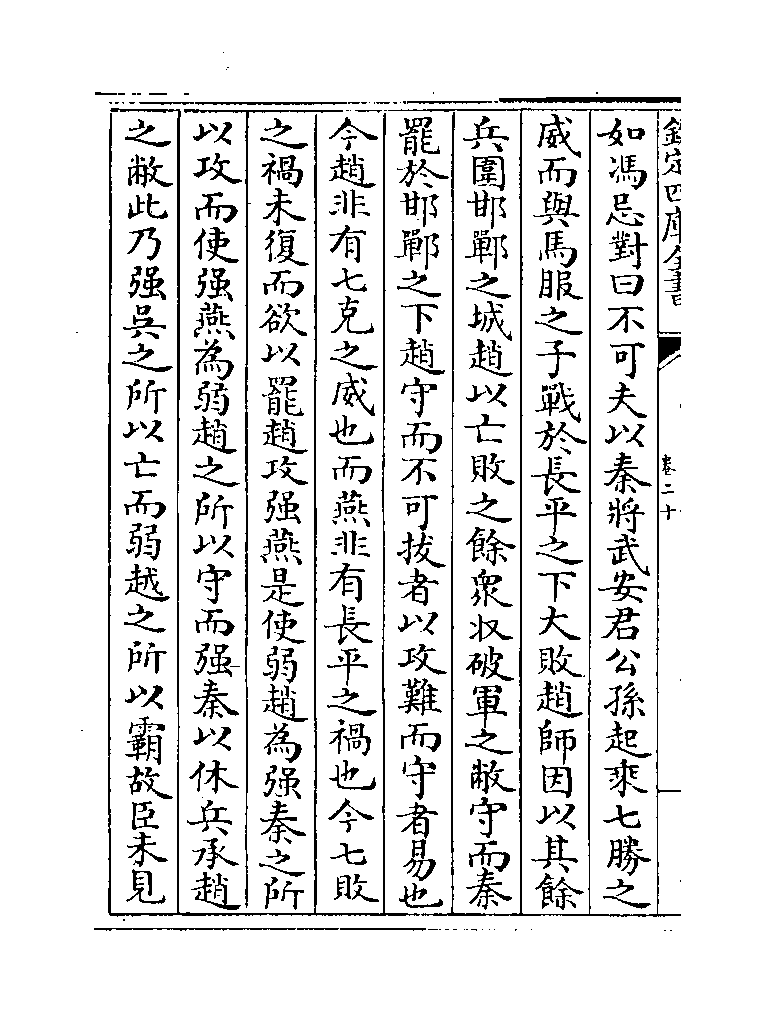 欽定四庫全書
卷二十
如馮忌對曰不可夫以秦將武安君公孫起乘七勝之
威而與馬服之子戰於長平之下大敗趙師因以其餘
兵圍邯鄲之城趙以亡敗之餘衆收破軍之敝守而秦
罷於邯鄲之下趙守而不可拔者以攻難而守者易也
今趙非有七克之威也而燕非有長平之禍也今七敗
之禍未復而欲以罷趙攻强燕是使弱趙為强秦之所
以攻而使强燕為弱趙之所以守而强秦以休兵承趙
之敝此乃强吳之所以亡而弱越之所以霸故臣未見